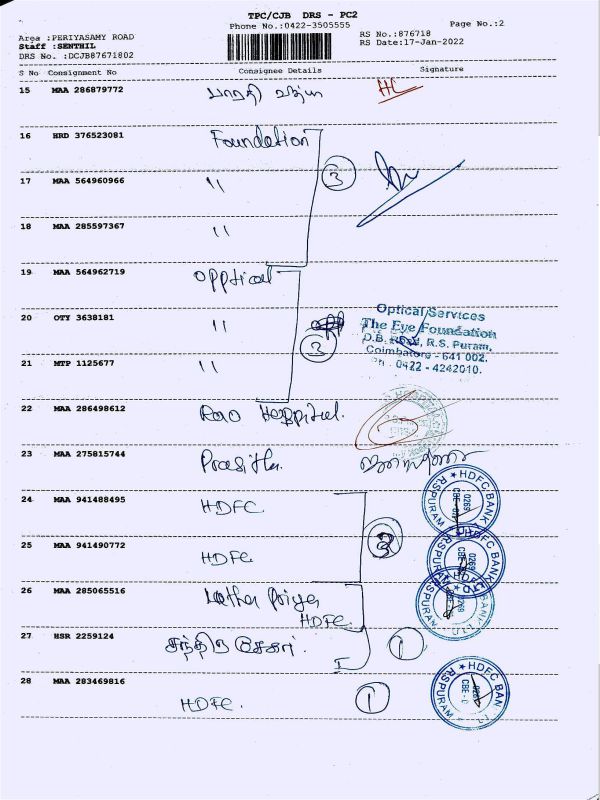 TPC/CJB DRS - PC2
Phone No.:0422-3505555
Page No.:2
Area :PERIYASAMY ROAD
RS No.:876718
Staff :SENTHIL
RS Date:17-Jan-2022
DRS No. :DCJB87671802
S No Consignment No Consignee Details Signature
15 MAA 286879772 பாரதி வித்யா
16 HRD 376523081 Foundation
17 MAA 564960966 " 3
18 MAA 285597367 "
19 MAA 564962719 Opptical
20 OTY 3638181 "
Optical Services
The Eye Foundation
D.B. Road, R.S. Puram,
Coimbatore - 641 002.
Ph : 0422 - 4242010.
21 MTP 1125677 " 3
22 MAA 286498612 Rao Hospital.
23 MAA 275815744 Prasitha.
24 MAA 941488495 HDFC
HDFC BANK
RSPURAM
0269
25 MAA 941490772 HDFC
HDFC BANK
RSPURAM
0269
26 MAA 285065516 Latha Priya
HDFC
RSPURAM
0269
27 HSR 2259124 சந்திர சேகர். 1
28 MAA 283469816 HDFC. 1
HDFC BAN
RSPURAM